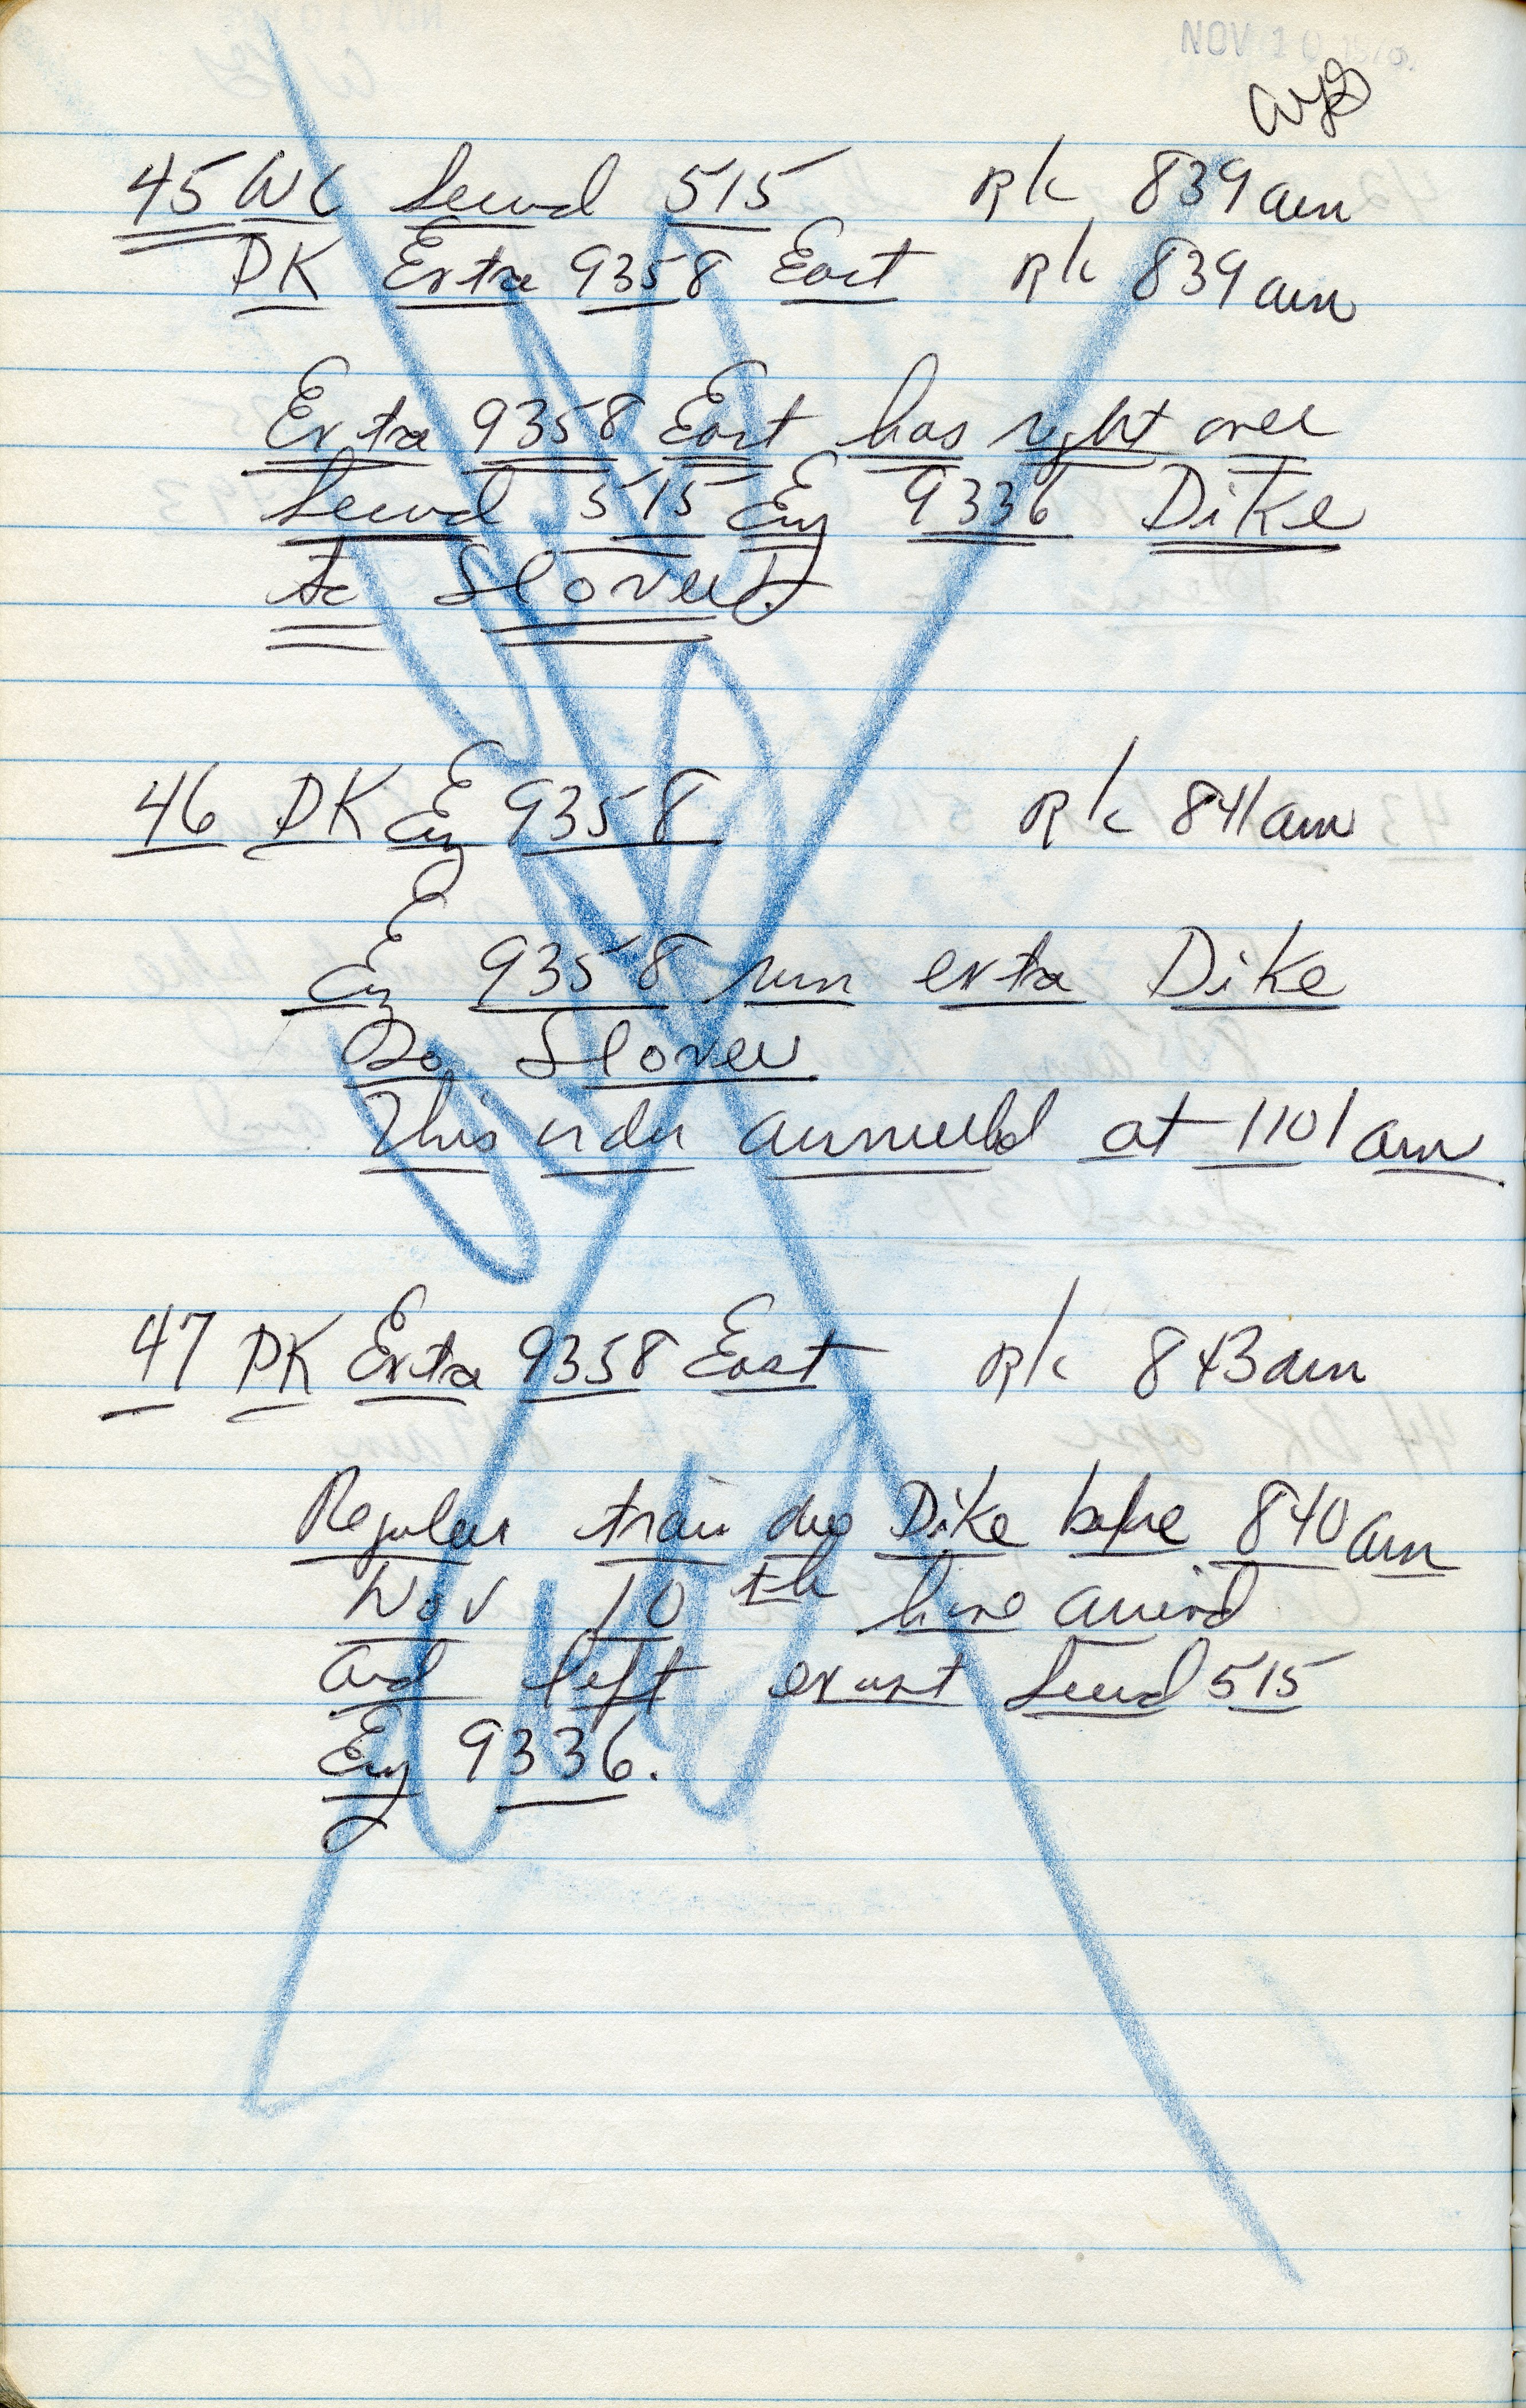 NOV 10
WJS
45 WC Secnd 515 R/k 839 am
DK Extra 9358 East R/k 839 am
Extra 9358 East has right over
Secnd 515 Eng 9336 Dike
to Slover.
46 DK Eng 9358 R/k 841 am
Eng 9358 run extra Dike
to Slover
This order annulled at 1101 am
47 DK Extra 9358 East R/k 843 am
Regular train due Dike before 840 am
Nov 10th have arrived
and left except Secnd 515
Eng 9336.